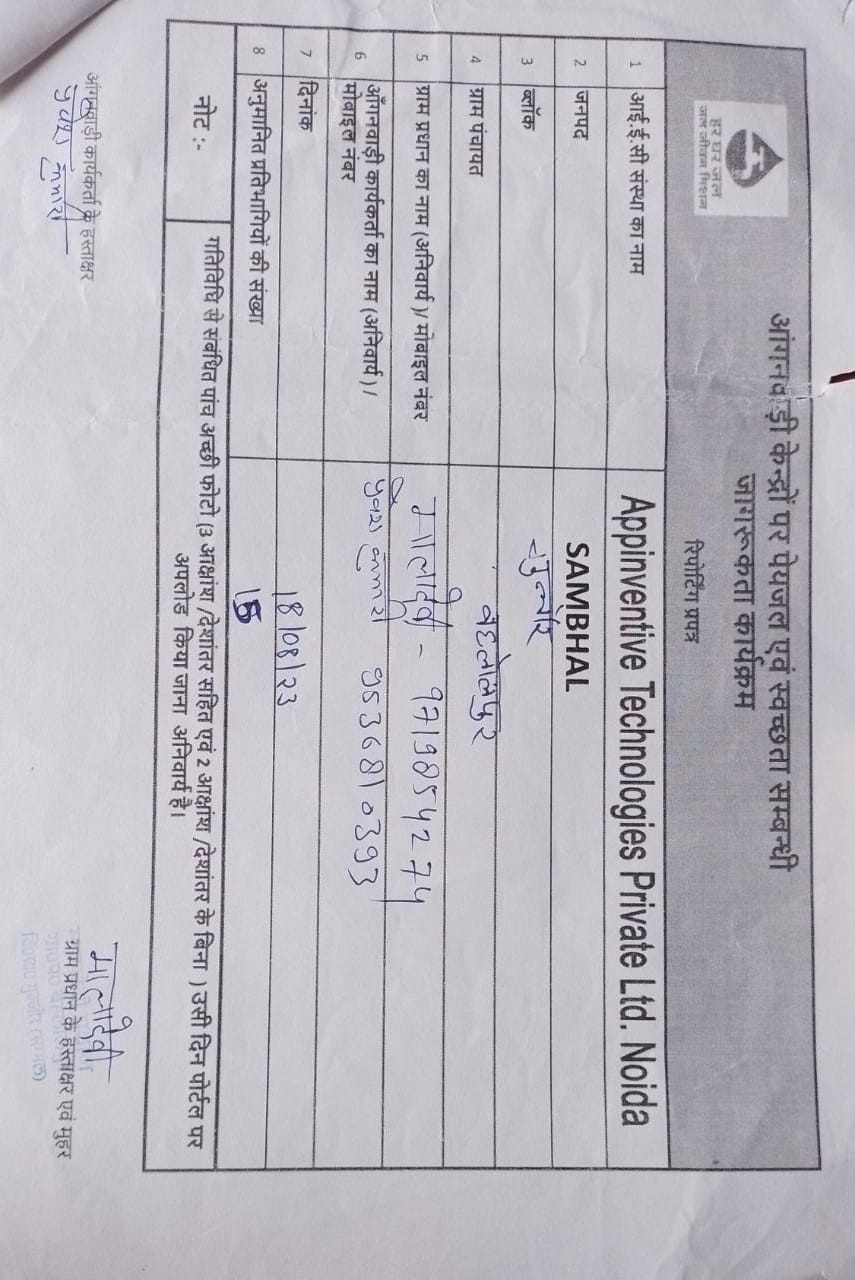 हर घर जल
जल जीवन मिशन
आंगनवाड़ी केन्द्रों पर पेयजल एवं स्वच्छता सम्बन्धी
जागरूकता कार्यक्रम
रिपोर्टिंग प्रपत्र
1 आई.ई.सी संस्था का नाम Appinventive Technologies Private Ltd. Noida
2 जनपद SAMBHAL
3 ब्लॉक
4 ग्राम पंचायत
5 ग्राम प्रधान का नाम (अनिवार्य )/ मोबाइल नंबर मालादेवी - 9719854274
6 आँगनवाड़ी कार्यकर्ता का नाम (अनिवार्य ) /
मोबाइल नंबर कुमारी 9536810393
7 दिनांक 18/08/23
8 अनुमानित प्रतिभागियों की संख्या 15
नोट :- गतिविधि से संबंधित पांच अच्छी फोटो (3 आक्षांश /देशांतर सहित एवं 2 आक्षांश /देशांतर के बिना ) उसी दिन पोर्टल पर
अपलोड किया जाना अनिवार्य है।
आंगनवाड़ी कार्यकर्ता के हस्ताक्षर
कुमारी
मालादेवी
ग्राम प्रधान के हस्ताक्षर एवं मुहर